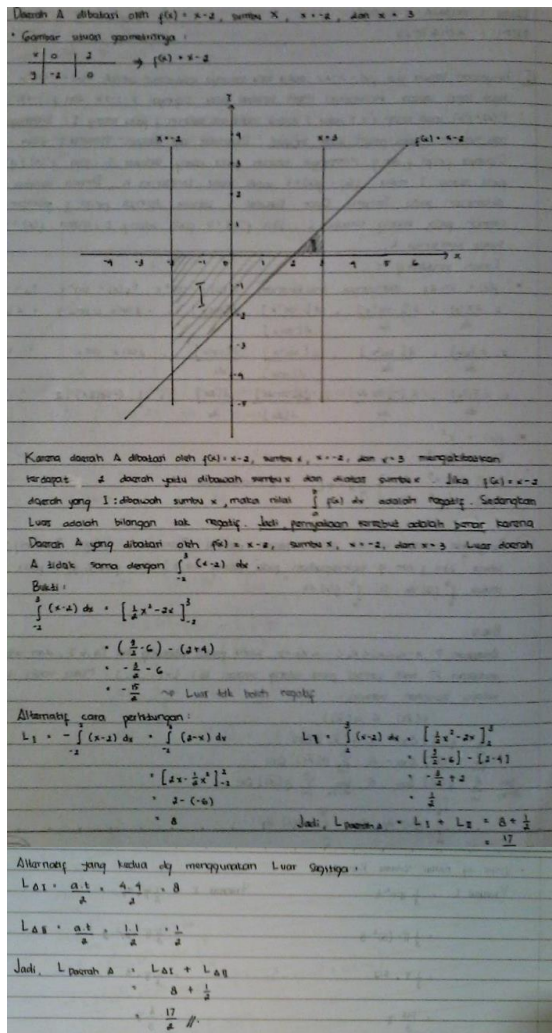 Daerah A dibatasi oleh f(x) = x-2, sumbu X, x = -2, dan x = 3
• Gambar geometrinya :
x | 0 | 2
y | -2 | 0 → f(x) = x-2
Y
x=-2 x=3 f(x) = x-2
4
3
2
1
-4 -3 -2 -1 0 1 2 3 4 5 6 x
I II
-1
-2
-4
-5
Karena daerah A dibatasi oleh f(x) = x-2, sumbu x, x = -2, dan x = 3 mengakibatkan
terdapat 2 daerah yaitu dibawah sumbu x dan diatas sumbu x. Jika f(x) = x-2
daerah yang I : dibawah sumbu x, maka nilai ∫ f(x) dx adalah negatif. Sedangkan
Luas adalah bilangan tak negatif. Jadi, pernyataan tersebut adalah benar karena
Daerah A yang dibatasi oleh f(x) = x-2, sumbu x, x = -2, dan x = 3 Luas daerah
A tidak sama dengan ∫_{-2}^{3} (x-2) dx.
Bukti :
∫_{-2}^{3} (x-2) dx = [1/2 x² - 2x]_{-2}^{3}
= (9/2 - 6) - (2+4)
= -3/2 - 6
= -15/2 ~> Luas tak boleh negatif
Alternatif cara perhitungan :
L I = -∫_{-2}^{2} (x-2) dx = ∫_{-2}^{2} (2-x) dx
= [2x - 1/2 x²]_{-2}^{2}
= 2-(-6)
= 8
L II = ∫_{2}^{3} (x-2) dx = [1/2 x² - 2x]_{2}^{3}
= [9/2 - 6] - [2-4]
= -3/2 + 2
= 1/2
Jadi, L Daerah A = L I + L II = 8 + 1/2
= 17
Alternatif yang kedua dg menggunakan Luas Segitiga :
L Δ I = a.t/2 = 4.4/2 = 8
L Δ II = a.t/2 = 1.1/2 = 1/2
Jadi, L Daerah A = L Δ I + L Δ II
= 8 + 1/2
= 17/2 //.